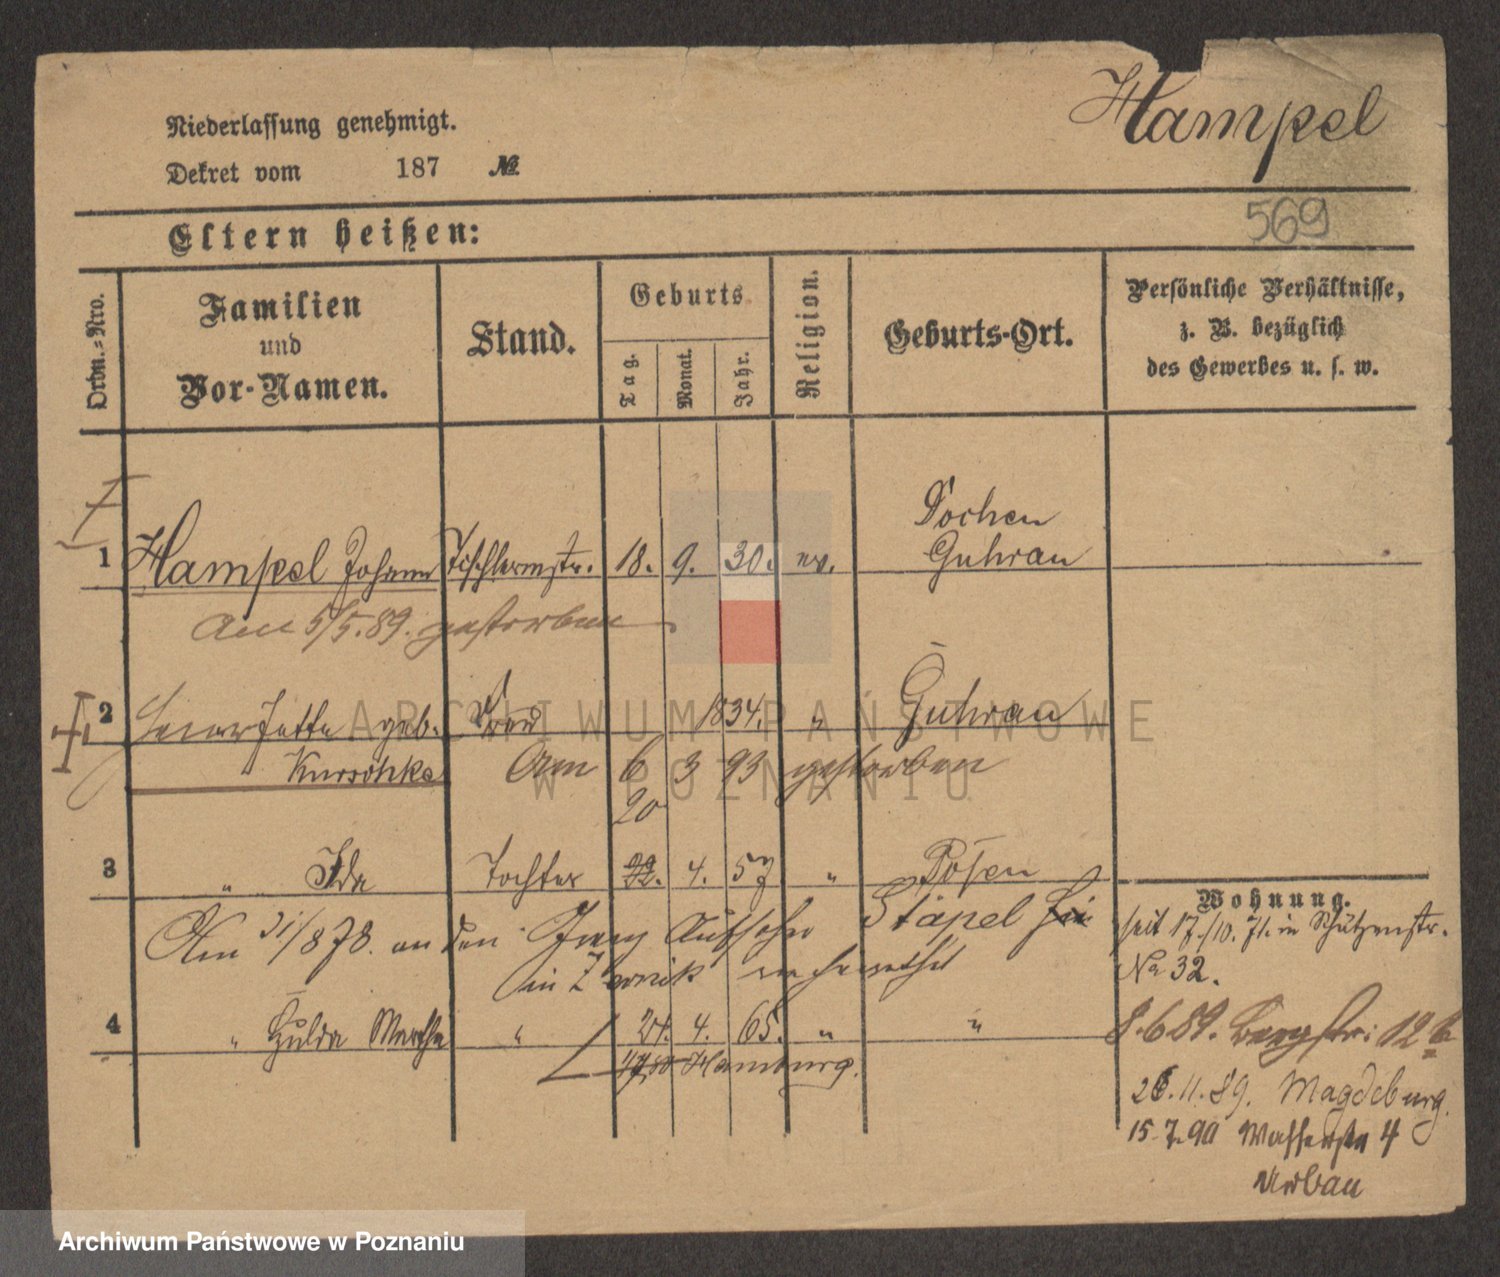 Hampel
Niederlassung genehmigt.
Dekret vom 187 №
569
Eltern heißen:
Ordn.=Nro.
Familien
und
Vor-Namen.
Stand.
Geburts
Tag.
Monat.
Jahr.
Religion.
Geburts-Ort.
Persönliche Verhältnisse,
z. B. bezüglich
des Gewerbes u. s. w.
Guhrau
1 Hampel Johann Tischlermstr. 18. 9. 30. ev.
Am 5/5.89. gestorben
2 geb. Frau 1834. " Guhrau
Am 6 3 93 gestorben
20
3 " Ida Tochter 22. 4. 57 " Posen
Wohnung.
Am 31/8 78. an den Stäpel
in verheirathet
seit 17./10. 71. in Schützenstr.
No 32.
4 " Hulda Martha " 24. 4. 65. " "
Hamburg.
8.6.89. Bergstr: 12 b
26.11.89. Magdeburg.
15.7.90 Wasserstr 4
Urbau
ARCHIWUM PAŃSTWOWE
W POZNANIU
Archiwum Państwowe w Poznaniu